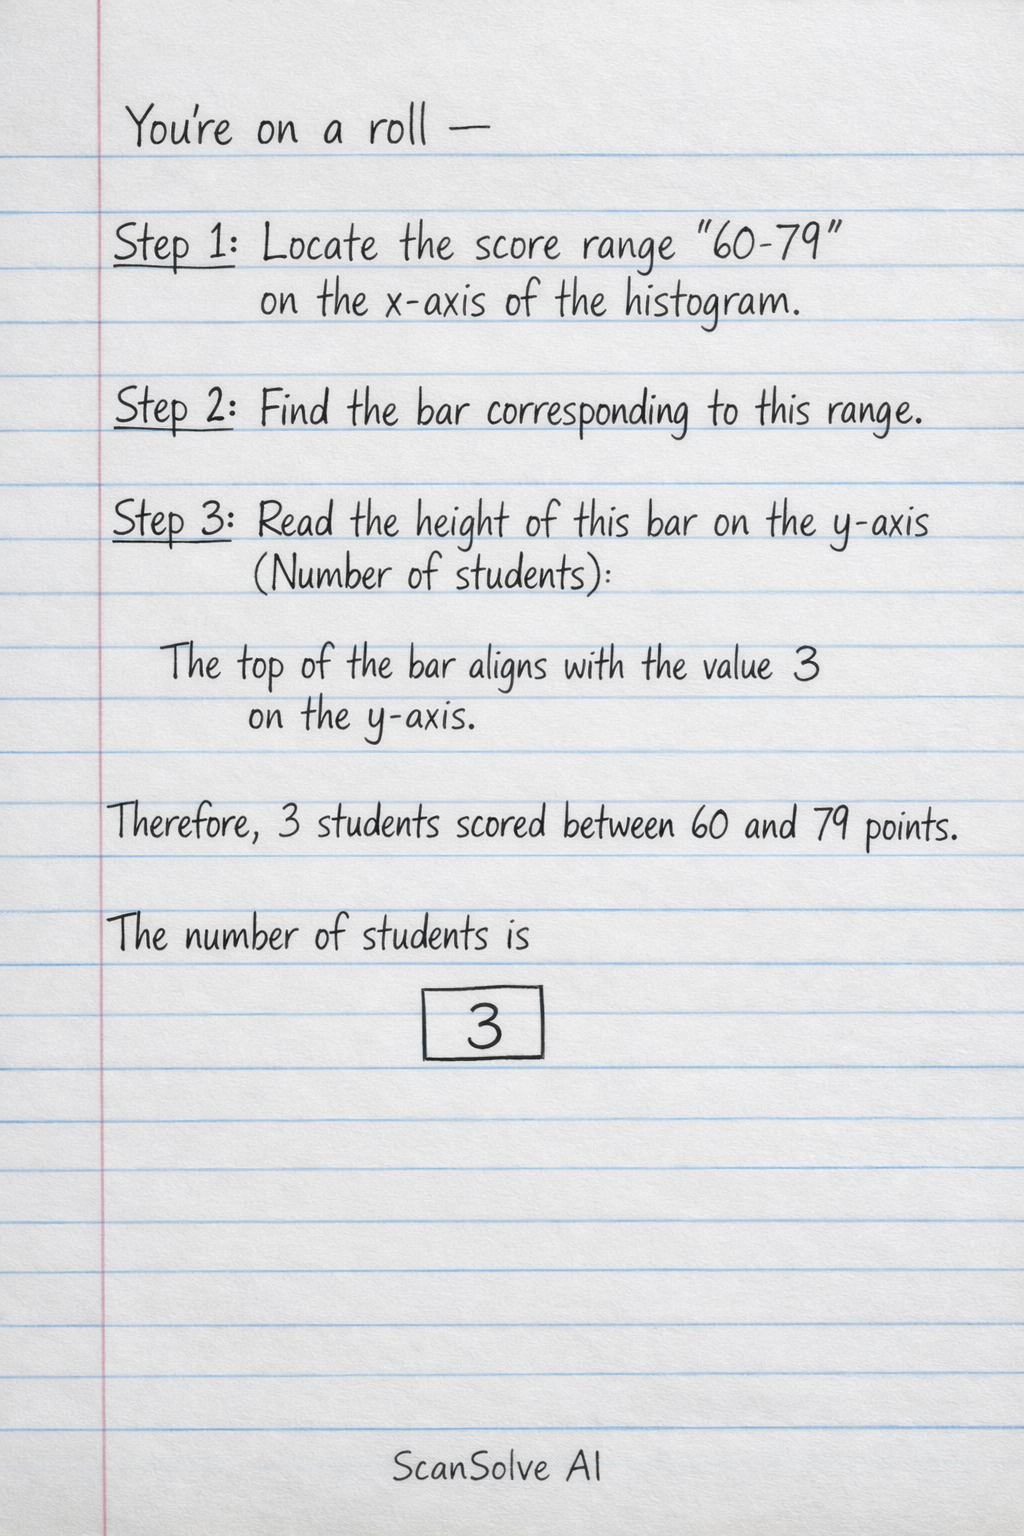 You're on a roll —
Step 1: Locate the score range "60-79"
on the x-axis of the histogram.
Step 2: Find the bar corresponding to this range.
Step 3: Read the height of this bar on the y-axis
(Number of students):
The top of the bar aligns with the value 3
on the y-axis.
Therefore, 3 students scored between 60 and 79 points.
The number of students is
3
ScanSolve AI